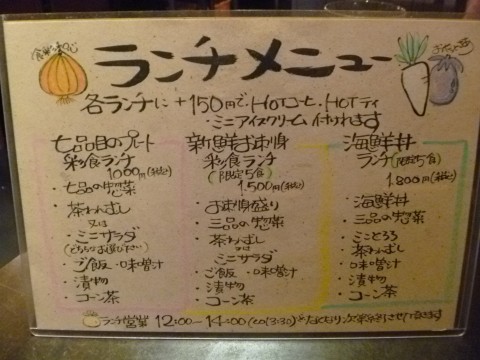 ランチメニュー
各ランチに+150円で、HOTコーヒ、HOTティ
・ミニアイスクリーム付けれます
七品目のプレート
彩食ランチ
1000円(税込)
・七品の惣菜
・茶わんむし
又は
・ミニサラダ
(どちらかお選び下さい)
・ご飯・味噌汁
・漬物
・コーン茶
新鮮お刺身
彩食ランチ
(限定5食)
1,500円(税込)
・お刺身盛り
・三品の惣菜
・茶わんむし
又は
・ミニサラダ
・ご飯・味噌汁
・漬物
・コーン茶
海鮮丼
ランチ(限定5食)
1,800円(税込)
・海鮮丼
・三品の惣菜
・ミニとろろ
・茶わんむし
・味噌汁
・漬物
・コーン茶
ランチ営業 12:00〜14:00(LO13:30)※なくなり次第終了させて頂きます